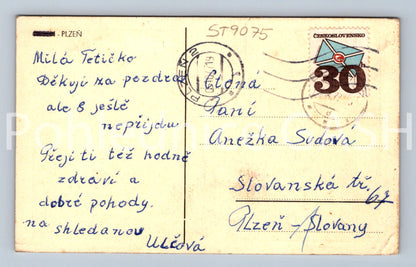 - PLZEŇ
ST9075
ČESKOSLOVENSKO
30
PLZEŇ 2
Milá Tetičko
Děkuji za pozdrav
ale š ještě
nepřijdu
Přeji ti též hodně
zdraví a
dobré pohody.
na shledanou
Ulčová
Ctěná
Paní
Anežka Sudová
Slovanská tř. 67
Plzeň - Slovany